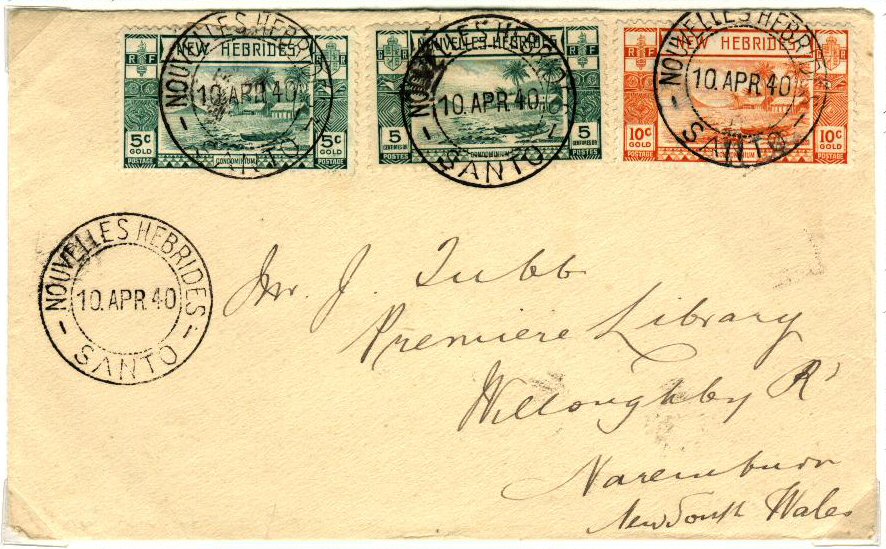 NEW HEBRIDES
R F
5c GOLD POSTAGE
CONDOMINIUM
5c GOLD POSTAGE
NOUVELLES HEBRIDES
10.APR.40
SANTO
NOUVELLES HEBRIDES
R F
5 CENTIMES OR POSTES
CONDOMINIUM
5 CENTIMES OR POSTES
NOUVELLES HEBRIDES
10.APR.40
SANTO
NEW HEBRIDES
R F
10c GOLD POSTAGE
CONDOMINIUM
10c GOLD POSTAGE
NOUVELLES HEBRIDES
10.APR.40
SANTO
NOUVELLES HEBRIDES
10.APR.40
SANTO
Mr. J. Tubb
Premiere Library
Willoughby Rd
Naremburn
New South Wales